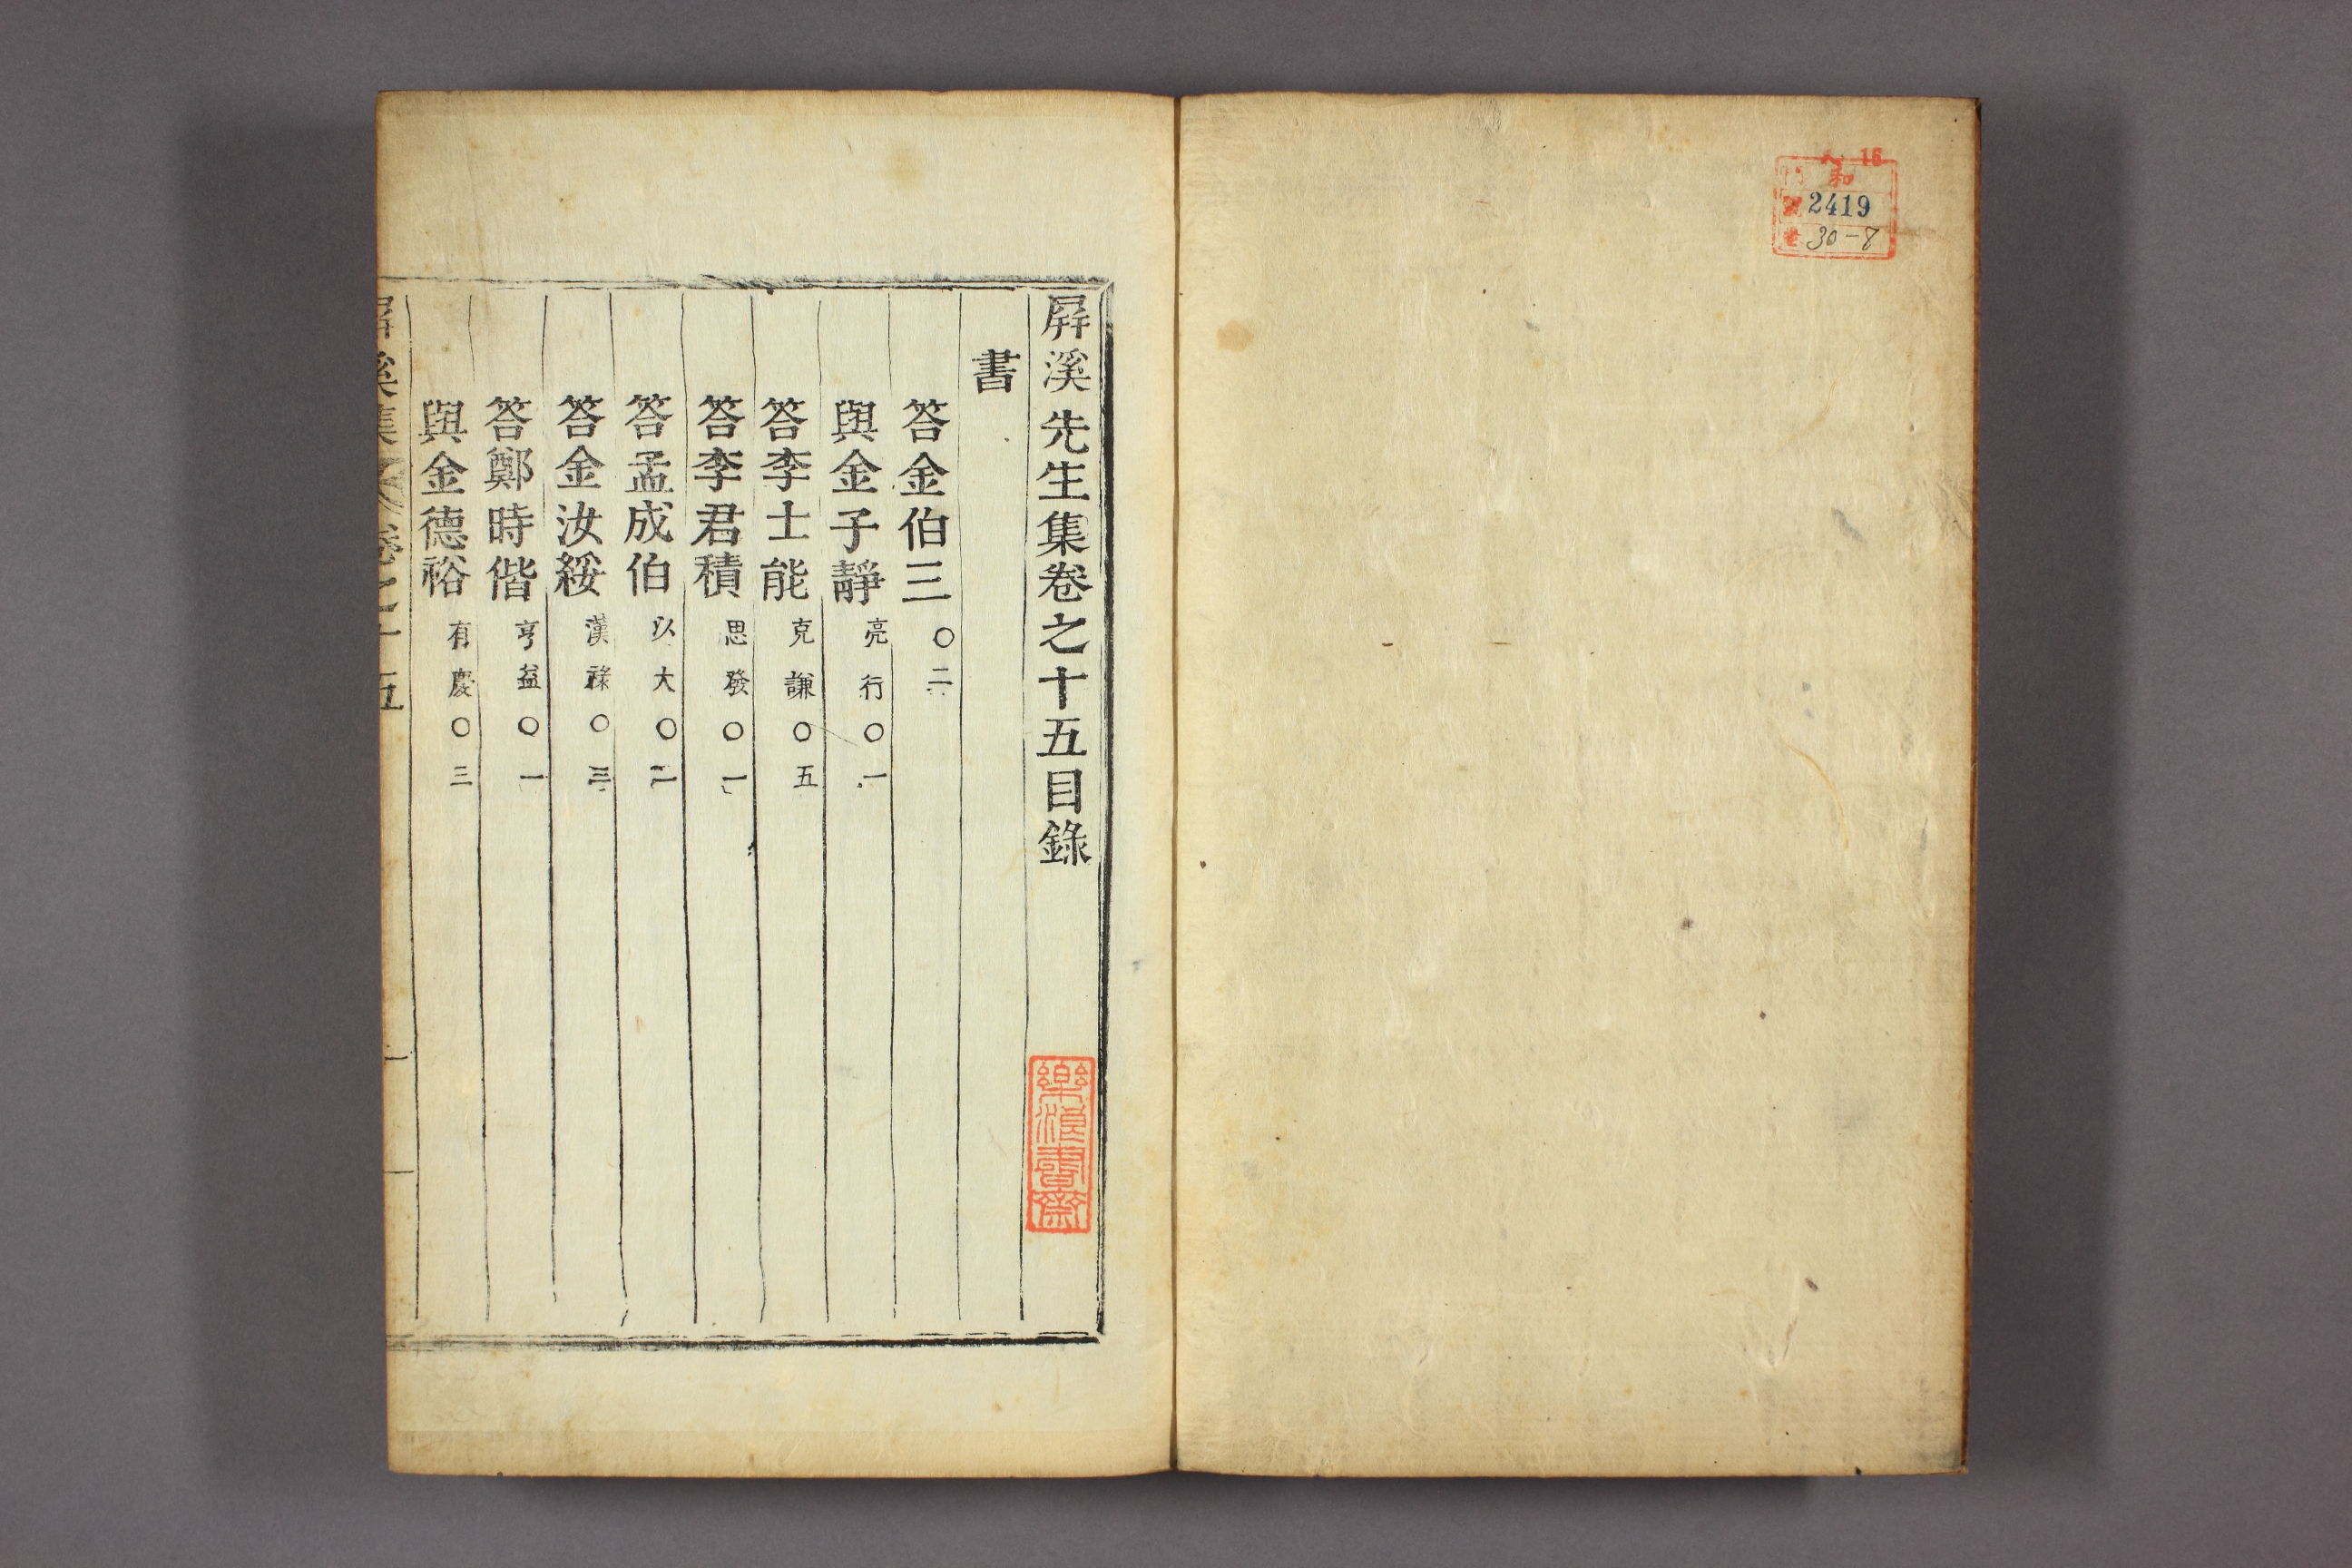 16
和
2419
30-8
屛溪先生集卷之十五目錄
樂浪書齋
書
答金伯三 ○二
與金子靜 亮行○一
答李士能 克謙○五
答李君積 思發○一
答孟成伯 以大○二
答金汝綏 漢祿○三
答鄭時偕 亨益○一
與金德裕 有慶○三
屛溪集 卷之十五 一